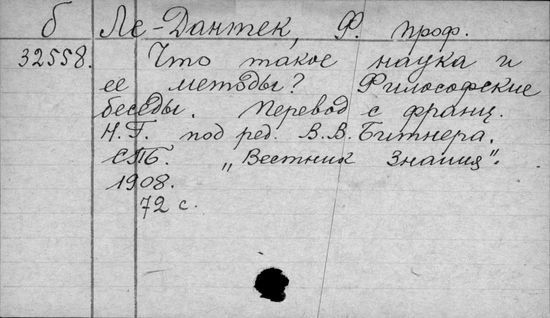 б Ле-Дантек, Ф. проф.
32558. Что такое наука и
ее методы? Философские
беседы. Перевод с франц.
Н.Г. под ред. В.В. Битнера.
СПБ. „Вестник Знания".
1908.
72 с.